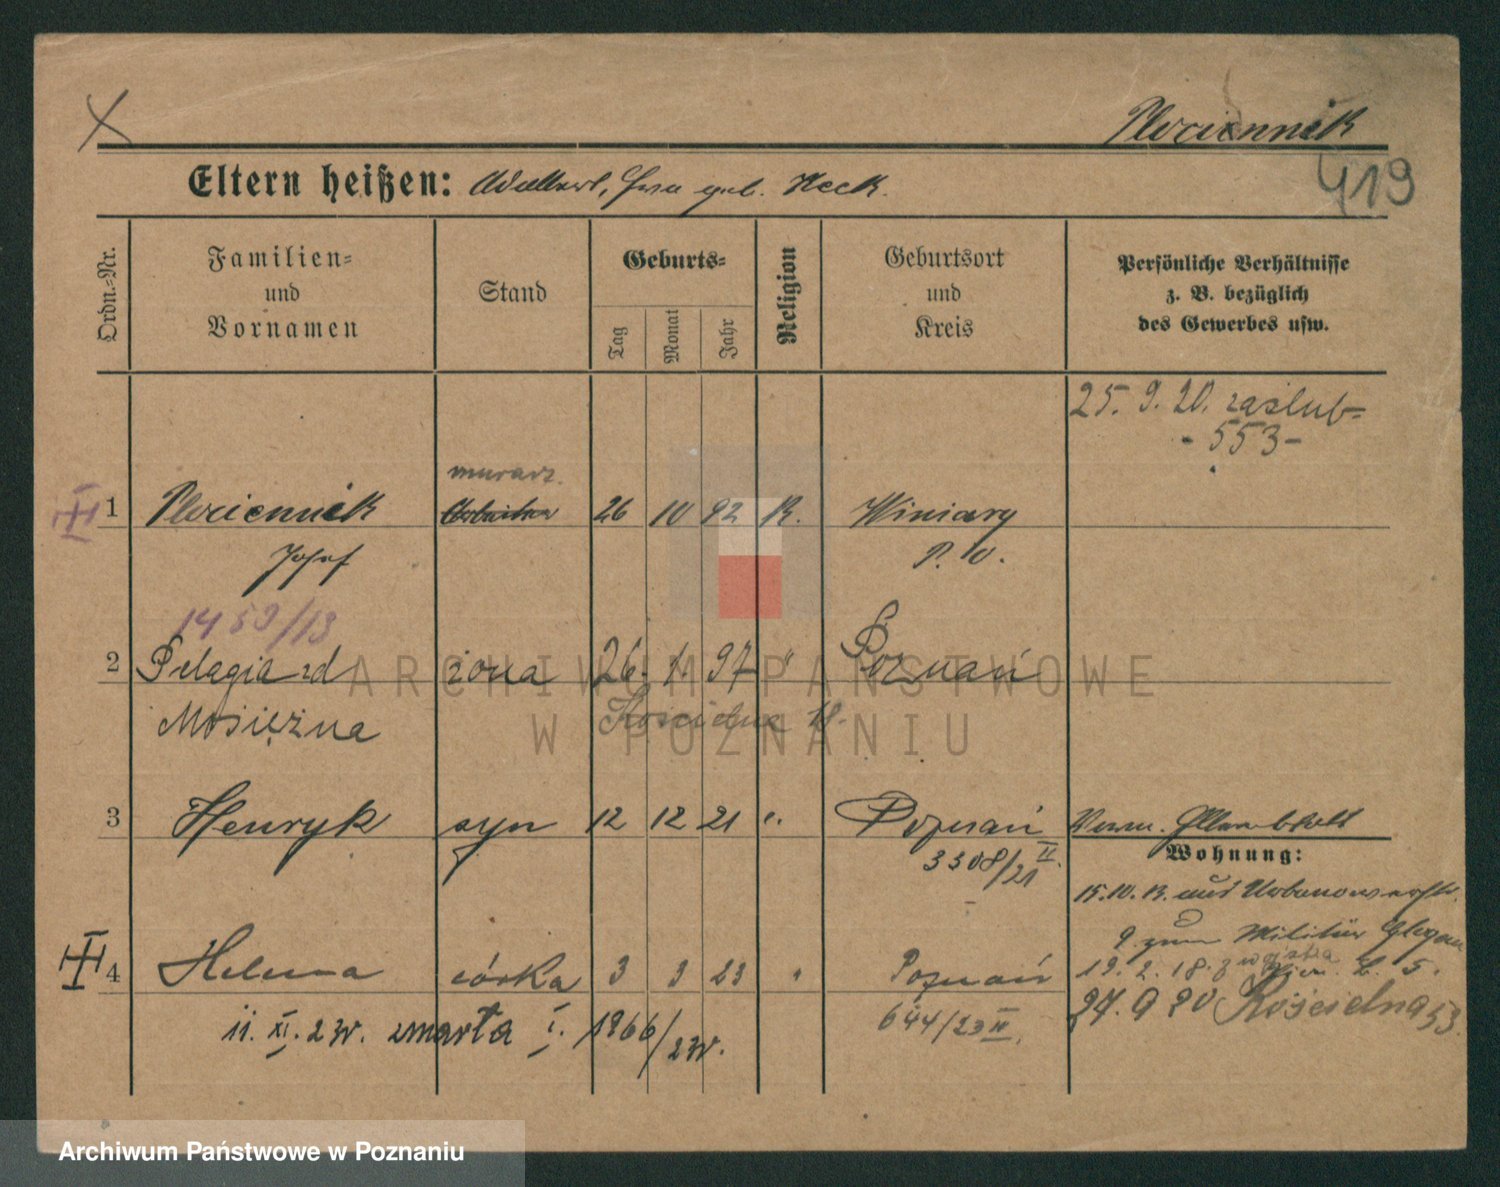 Plociennik
419
Eltern heißen: Adalbert, Eva geb. Heck.
Ordn.=Nr.
Familien=
und
Vornamen
Stand
Geburts=
Tag
Monat
Jahr
Religion
Geburtsort
und
Kreis
Persönliche Verhältnisse
z. B. bezüglich
des Gewerbes usw.
25. 9. 20. zaślub=
- 553 -
murarz.
1 Plociennik Arbeiter 26 10 92 K. Winiary
Josef P. W.
1459/13
2 Pelagia zd żona 26. 1. 97 " Poznań
Mosiężna Kościelna 18.
3 Henryk syn 12 12 21 ". Poznań
3308/21 II.
Wohnung:
15.10.13. aus Urbanowerstr.
9 zum Militär Glogau
4 Helena córka 3 3 23 " Poznań 19. 2. 18. z wojska 5.
644/23 II. 27. 9 20 Kościelna 53.
11. XI. 23r. zmarła I. 1966/23r.
ARCHIWUM PAŃSTWOWE
W POZNANIU
Archiwum Państwowe w Poznaniu